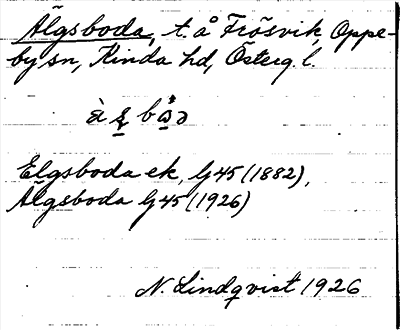 Älgsboda, t. å Frösvik, Oppe-
by sn, Kinda hd, Österg. l.
Elgsboda ek, G45 (1882),
Älgsboda G45 (1926)
N. Lindqvist 1926